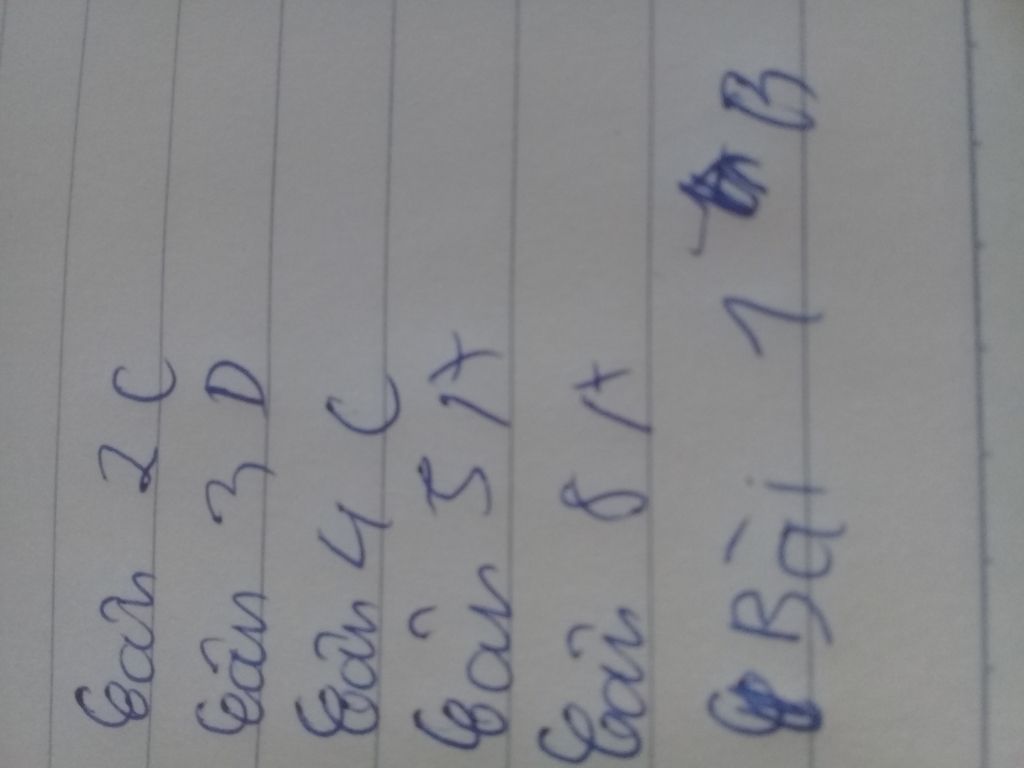 Câu 2 C
Câu 3 D
Câu 4 C
Câu 5 A
Câu 8 A
Bài 1 B